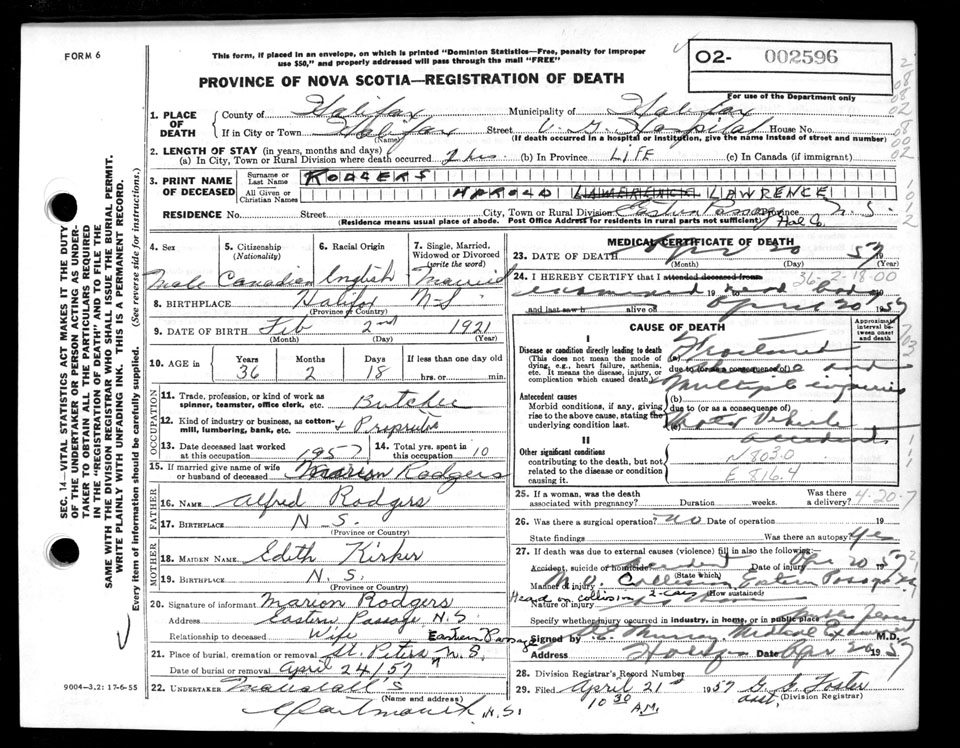 FORM 6
This form, if placed in an envelope, on which is printed "Dominion Statistics—Free, penalty for improper
use $50," and properly addressed will pass through the mail "FREE"
PROVINCE OF NOVA SCOTIA—REGISTRATION OF DEATH
O2- 002596
For use of the Department only
1. PLACE OF DEATH
County of Halifax Municipality of Halifax
If in City or Town Halifax Street V. G. Hospital House No.
(Name) (If death occurred in a hospital or institution, give the name instead of street and number)
2. LENGTH OF STAY (in years, months and days)
(a) In City, Town or Rural Division where death occurred 2 hrs. (b) In Province LIFE (c) In Canada (if immigrant)
3. PRINT NAME OF DECEASED
Surname or Last Name RODGERS
All Given or Christian Names HAROLD LAWRENCE
RESIDENCE No. Street City, Town or Rural Division Eastern Passage Province N. S.
(Residence means usual place of abode. Post Office Address for residents in rural parts not sufficient) Hal Co.
4. Sex
Male
5. Citizenship (Nationality)
Canadian
6. Racial Origin
English
7. Single, Married, Widowed or Divorced (write the word)
Married
8. BIRTHPLACE Halifax N-S
(Province or Country)
9. DATE OF BIRTH Feb 2nd 1921
(Month) (Day) (Year)
10. AGE in Years Months Days If less than one day old
36 2 18 hrs. or min.
OCCUPATION
11. Trade, profession, or kind of work as spinner, teamster, office clerk, etc. Butcher
12. Kind of industry or business, as cotton-mill, lumbering, bank, etc. + Proprietor
13. Date deceased last worked at this occupation 1957
14. Total yrs. spent in this occupation 10
15. If married give name of wife or husband of deceased Marion Rodgers
FATHER
16. NAME Alfred Rodgers
17. BIRTHPLACE N. S.
(Province or Country)
MOTHER
18. MAIDEN NAME Edith Kirker
19. BIRTHPLACE N. S.
(Province or Country)
20. Signature of informant Marion Rodgers
Address Eastern Passage N.S.
Relationship to deceased Wife
21. Place of burial, cremation or removal St. Peters Eastern Passage N.S.
Date of burial or removal April 24/57
22. UNDERTAKER
(Name and address)
Dartmouth N.S.
MEDICAL CERTIFICATE OF DEATH
23. DATE OF DEATH Apr 20 57
(Month) (Day) (Year)
24. I HEREBY CERTIFY that I attended deceased from 36-2-18-00
examined 19 dead body 19
and last saw h alive on April 20 1957
CAUSE OF DEATH
Approximate interval between onset and death
I
Disease or condition directly leading to death (a) Fractured
(This does not mean the mode of dying, e.g., heart failure, asthenia, etc. It means the disease, injury, or complication which caused death)
due to (or as a consequence of)
and
Multiple injuries
(b)
Antecedent causes
Morbid conditions, if any, giving rise to the above cause, stating the underlying condition last
due to (or as a consequence of)
(c) Motor Vehicle
accident
II
Other significant conditions
contributing to the death, but not related to the disease or condition causing it
N803.0
E 816.4
25. If a woman, was the death associated with pregnancy? Duration weeks. Was there a delivery? 4-20-7
26. Was there a surgical operation? no Date of operation 19
State findings Was there an autopsy? yes
27. If death was due to external causes (violence) fill in also the following:
Accident, suicide or homicide? Accident Date of injury Apr 20 1957
(State which)
Manner of injury M. V. Collision Eastern Passage
Head on collision 2-cars (How sustained)
Nature of injury
Specify whether injury occurred in industry, in home, or in public place
Signed by Murray Medical Examiner M.D.
Address Halifax Date Apr 20 1957
28. Division Registrar's Record Number
29. Filed April 21st 1957 G. S. Foster
10 30 A.M. asst. (Division Registrar)
SEC. 14—VITAL STATISTICS ACT MAKES IT THE DUTY
OF THE UNDERTAKER OR PERSON ACTING AS UNDER-
TAKER TO OBTAIN ALL THE PARTICULARS REQUIRED
IN THE "REGISTRATION OF DEATH" AND TO FILE THE
SAME WITH THE DIVISION REGISTRAR WHO SHALL ISSUE THE BURIAL PERMIT.
WRITE PLAINLY WITH UNFADING INK. THIS IS A PERMANENT RECORD.
Every item of information should be carefully supplied. (See reverse side for instructions.)
9004—3.2: 17-6-55